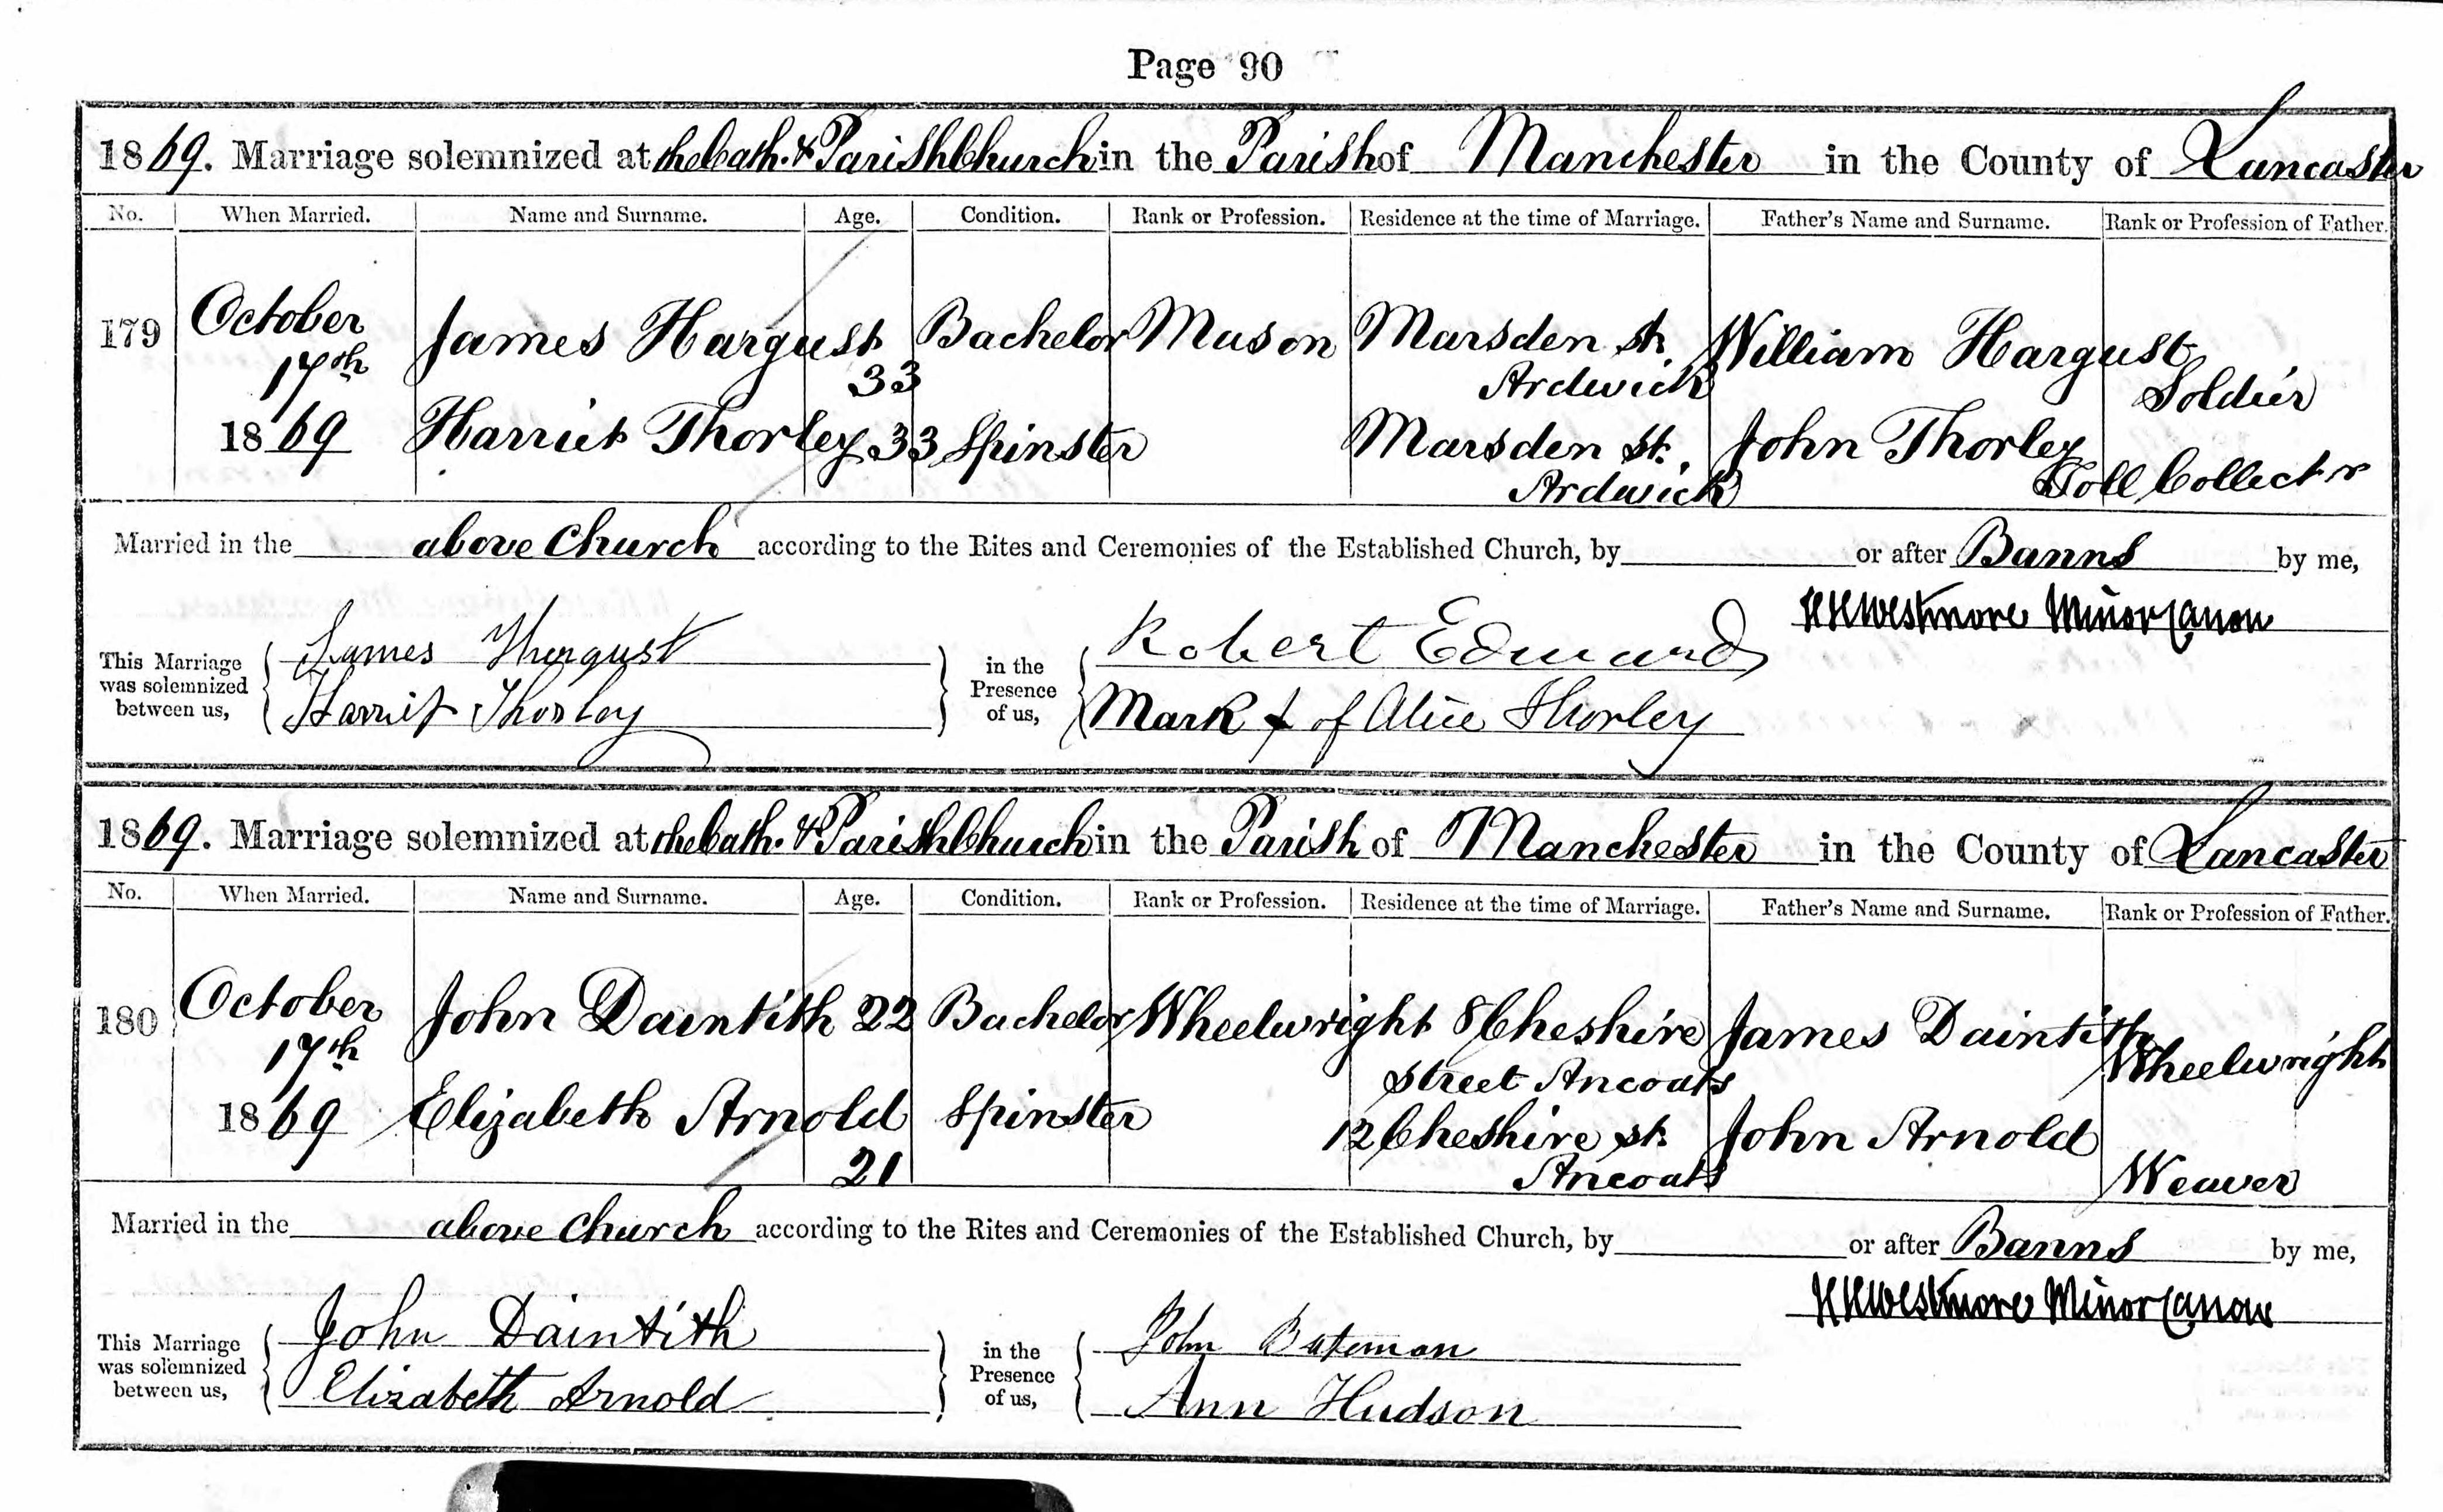 Page 90
1869. Marriage solemnized at the Cath. & Parish Church in the Parish of Manchester in the County of Lancaster
No. When Married. Name and Surname. Age. Condition. Rank or Profession. Residence at the time of Marriage. Father's Name and Surname. Rank or Profession of Father.
179 October James Hargust Bachelor Mason Marsden St. William Hargust
17th 33 Ardwick Soldier
1869 Harriet Thorley 33 Spinster Marsden St. John Thorley
Ardwick Toll Collector
Married in the above Church according to the Rites and Ceremonies of the Established Church, by or after Banns by me,
Westmore Minor Canon
This Marriage was solemnized between us, James Hargust in the Presence of us, Robert Edward
Harriet Thorley Mark X of Alice Thorley
1869. Marriage solemnized at the Cath. & Parish Church in the Parish of Manchester in the County of Lancaster
No. When Married. Name and Surname. Age. Condition. Rank or Profession. Residence at the time of Marriage. Father's Name and Surname. Rank or Profession of Father.
180 October John Daintith 22 Bachelor Wheelwright 8 Cheshire James Daintith
17th Street Ancoats Wheelwright
1869 Elizabeth Arnold Spinster 12 Cheshire St. John Arnold
21 Ancoats Weaver
Married in the above Church according to the Rites and Ceremonies of the Established Church, by or after Banns by me,
Westmore Minor Canon
This Marriage was solemnized between us, John Daintith in the Presence of us, John Bateman
Elizabeth Arnold Ann Hudson